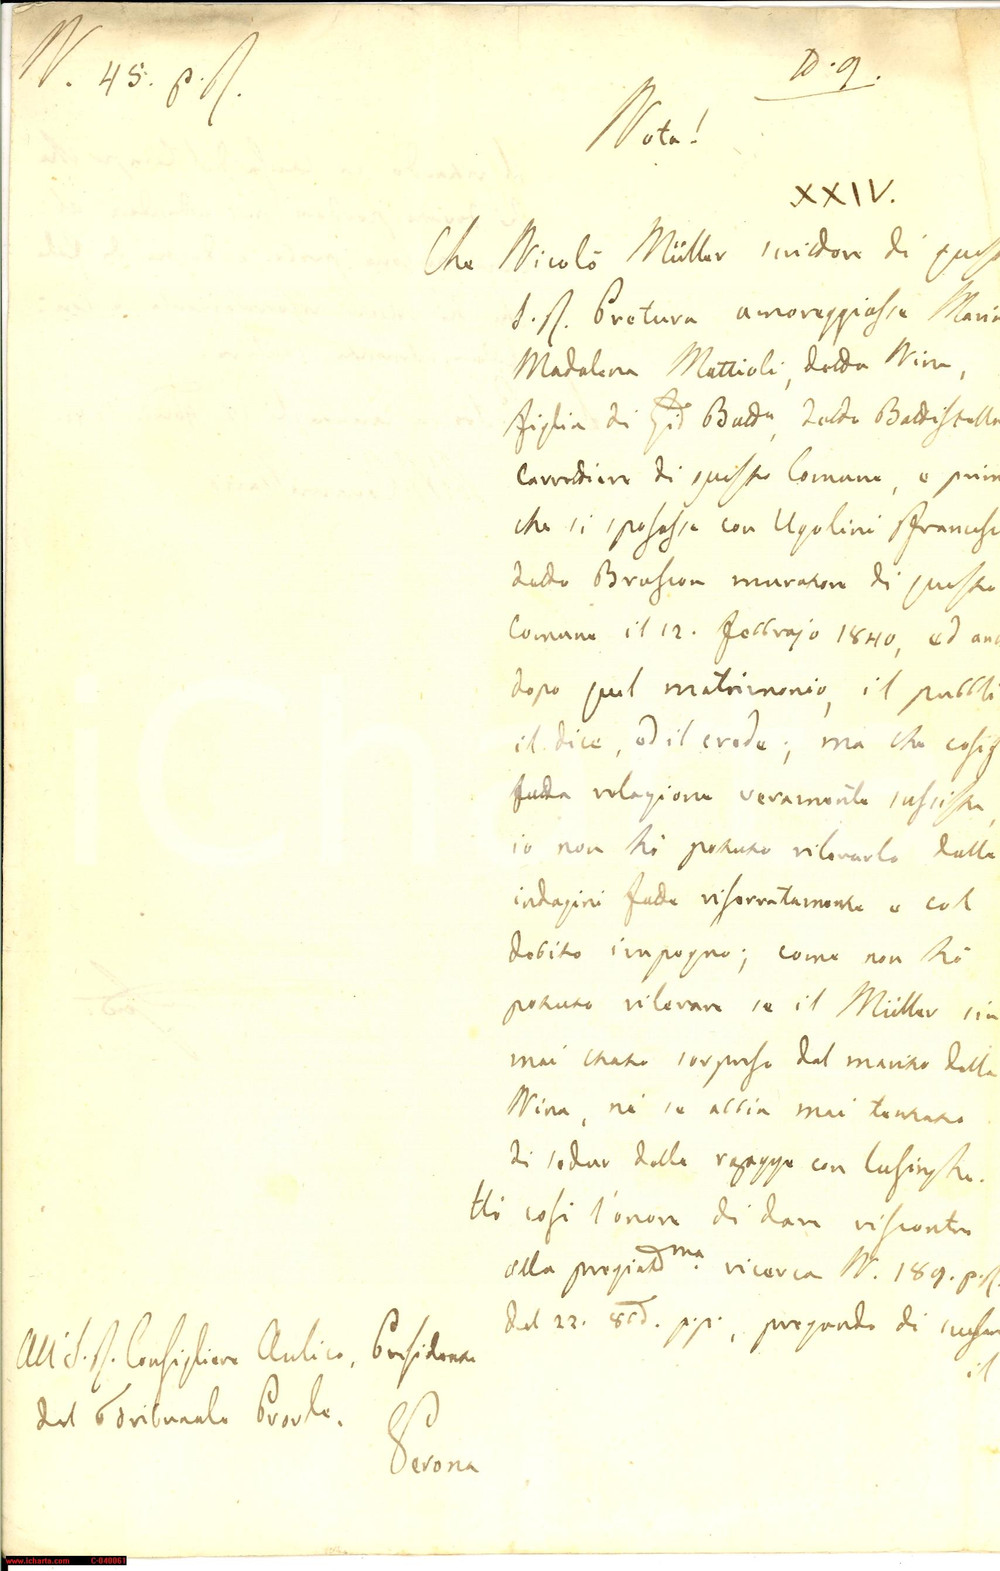 N. 45. p. R.
D. 9.
Nota!
XXIV.
Che Nicolò Müller scrittore di quest
I. R. Pretura amoreggiasse Maria
Madalena Mattioli, detta Nina,
figlia di Gio Batta, detto Battistella
carrettiere di questo Comune, e prim
che si sposasse con Ugolini Francesc
detto Bruscon muratore di questo
Comune il 12. Febbrajo 1840, ed anc
dopo quel matrimonio, il pubbli
il dice, ed il crede; ma che cosif
fatta relazione veramente sussista,
io non hò potuto rilevarlo dalle
indagini fatte riserratamente e col
debito impegno; come non hò
potuto rilevare se il Müller sia
mai stato sorpreso dal marito della
Nina, nè se abbia mai tentato
di sedur delle ragazze con lusinghe.
Hò così l'onore di dare riscontro
alla pregiatma. ricerca N. 189. p. R.
del 22. 8bre. p.p., pregando di scusar
il
All' I. R. Consigliere Aulico, Presidente
del Tribunale Provle.
Verona
www.icharta.com C-040061
iCharta